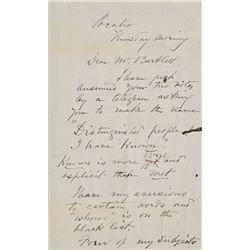 Pocaho
Thursday Morning
Dear Mr. Bartlett
I have just
answered your two notes
by a telegram asking
you to make the name
"Distinguished people
I have Known"
Known is more and
explicit than met
I have my aversions
to certain words and
"whom" is on the
black list.
Four of my subjects